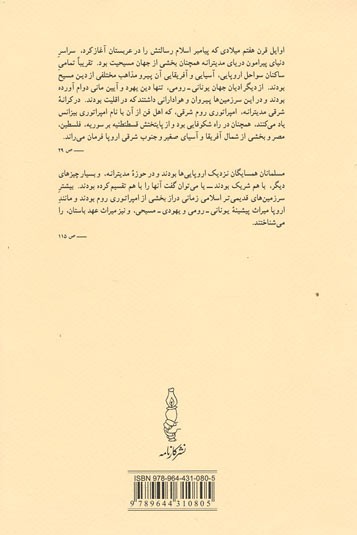 اوایل قرن هفتم میلادی که پیامبر اسلام رسالتش را در عربستان آغازکرد، سراسرِ
دنیای پیرامون دریای مدیترانه همچنان بخشی از جهان مسیحیت بود. تقریباً تمامی
ساکنان سواحل اروپایی، آسیایی و آفریقایی آن پیرو مذاهب مختلفی از دین مسیح
بودند. از دیگر ادیان جهان یونانی ـ رومی، تنها دین یهود و آیین مانی دوام آورده
بودند و در این سرزمین‌ها پیروان و هوادارانی داشتند که در اقلیت بودند. در کرانهٔ
شرقی مدیترانه، امپراتوری روم شرقی، که اهل فن از آن با نام امپراتوری بیزانس
یاد می‌کنند، همچنان در راه شکوفایی بود و از پایتختش قسطنطنیه بر سوریه، فلسطین،
مصر و بخشی از شمال آفریقا و آسیای صغیر و جنوب شرقی اروپا فرمان می‌راند.
ــــ ص ۲۹
مسلمانان همسایگان نزدیک اروپایی‌ها بودند و در حوزهٔ مدیترانه، و بسیار چیزهای
دیگر، با هم شریک بودند ــ یا می‌توان گفت آنها را با هم تقسیم کرده بودند. بیشترِ
سرزمین‌های قدیمی‌تر اسلامی زمانی دراز بخشی از امپراتوری روم بودند و مانندِ
اروپا میراث پیشینهٔ یونانی ـ رومی و یهودی ـ مسیحی، و نیز میراث عهد باستان، را
می‌شناختند.
ــــ ص ۱۱۵
نشر کارنامه
ISBN 978-964-431-080-5
9 789644 310805